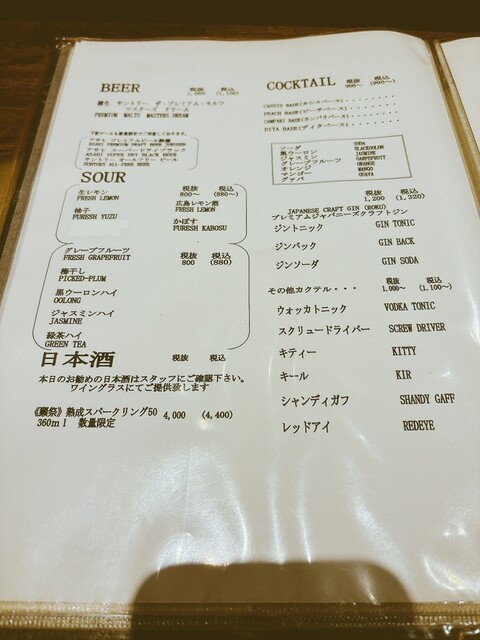 BEER 税抜 税込
1,000 (1,100)
樽生 サントリー ザ・プレミアム・モルツ
マスターズ ドリーム
PREMIUM MALTS MASTERS DREAM
アサヒ プレミアムビール熟撰
ASAHI PREMIUM DRAFT BEER JUKUSEN
アサヒ スーパードライブラック
ASAHI SUPER DRY BLACK BEER
サントリー オールフリー ビール
SUNTORY ALL-FREE BEER
SOUR 税抜 税込
800～ (880～)
生レモン
FRESH LEMON
広島レモン酒
FRESH LEMON
柚子
FURESH YUZU
かぼす
FURESH KABOSU
グレープフルーツ 税抜 税込
FRESH GRAPEFRUIT 800 (880)
梅干し
PICKED-PLUM
黒ウーロンハイ
OOLONG
ジャスミンハイ
JASMINE
緑茶ハイ
GREEN TEA
日本酒 税抜 税込
本日のお勧めの日本酒はスタッフにご確認下さい。
ワイングラスにてご提供致します
《獺祭》熟成スパークリング50 4,000 (4,400)
360ml 数量限定
COCKTAIL 税抜 税込
900～ (990～)
CASSIS BASE(カシスベース)........
PEACH BASE(ピーチベース)........
CAMPARI BASE(カンパリベース)........
DITA BASE(ディタベース)........
ソーダ SODA
黒ウーロン BLACKOOLON
ジャスミン JASMINE
グレープフルーツ GRAPEFRUIT
オレンジ ORANGE
マンゴー MANGO
グァバ
税抜 税込
1,200 (1,320)
JAPANESE CRAFT GIN (ROKU)
プレミアムジャパニーズクラフトジン
ジントニック GIN TONIC
ジンバック GIN BACK
ジンソーダ GIN SODA
税抜 税込
その他カクテル・・・ 1,000～ (1,100～)
ウォッカトニック VODKA TONIC
スクリュードライバー SCREW DRIVER
キティー KITTY
キール KIR
シャンディガフ SHANDY GAFF
レッドアイ REDEYE